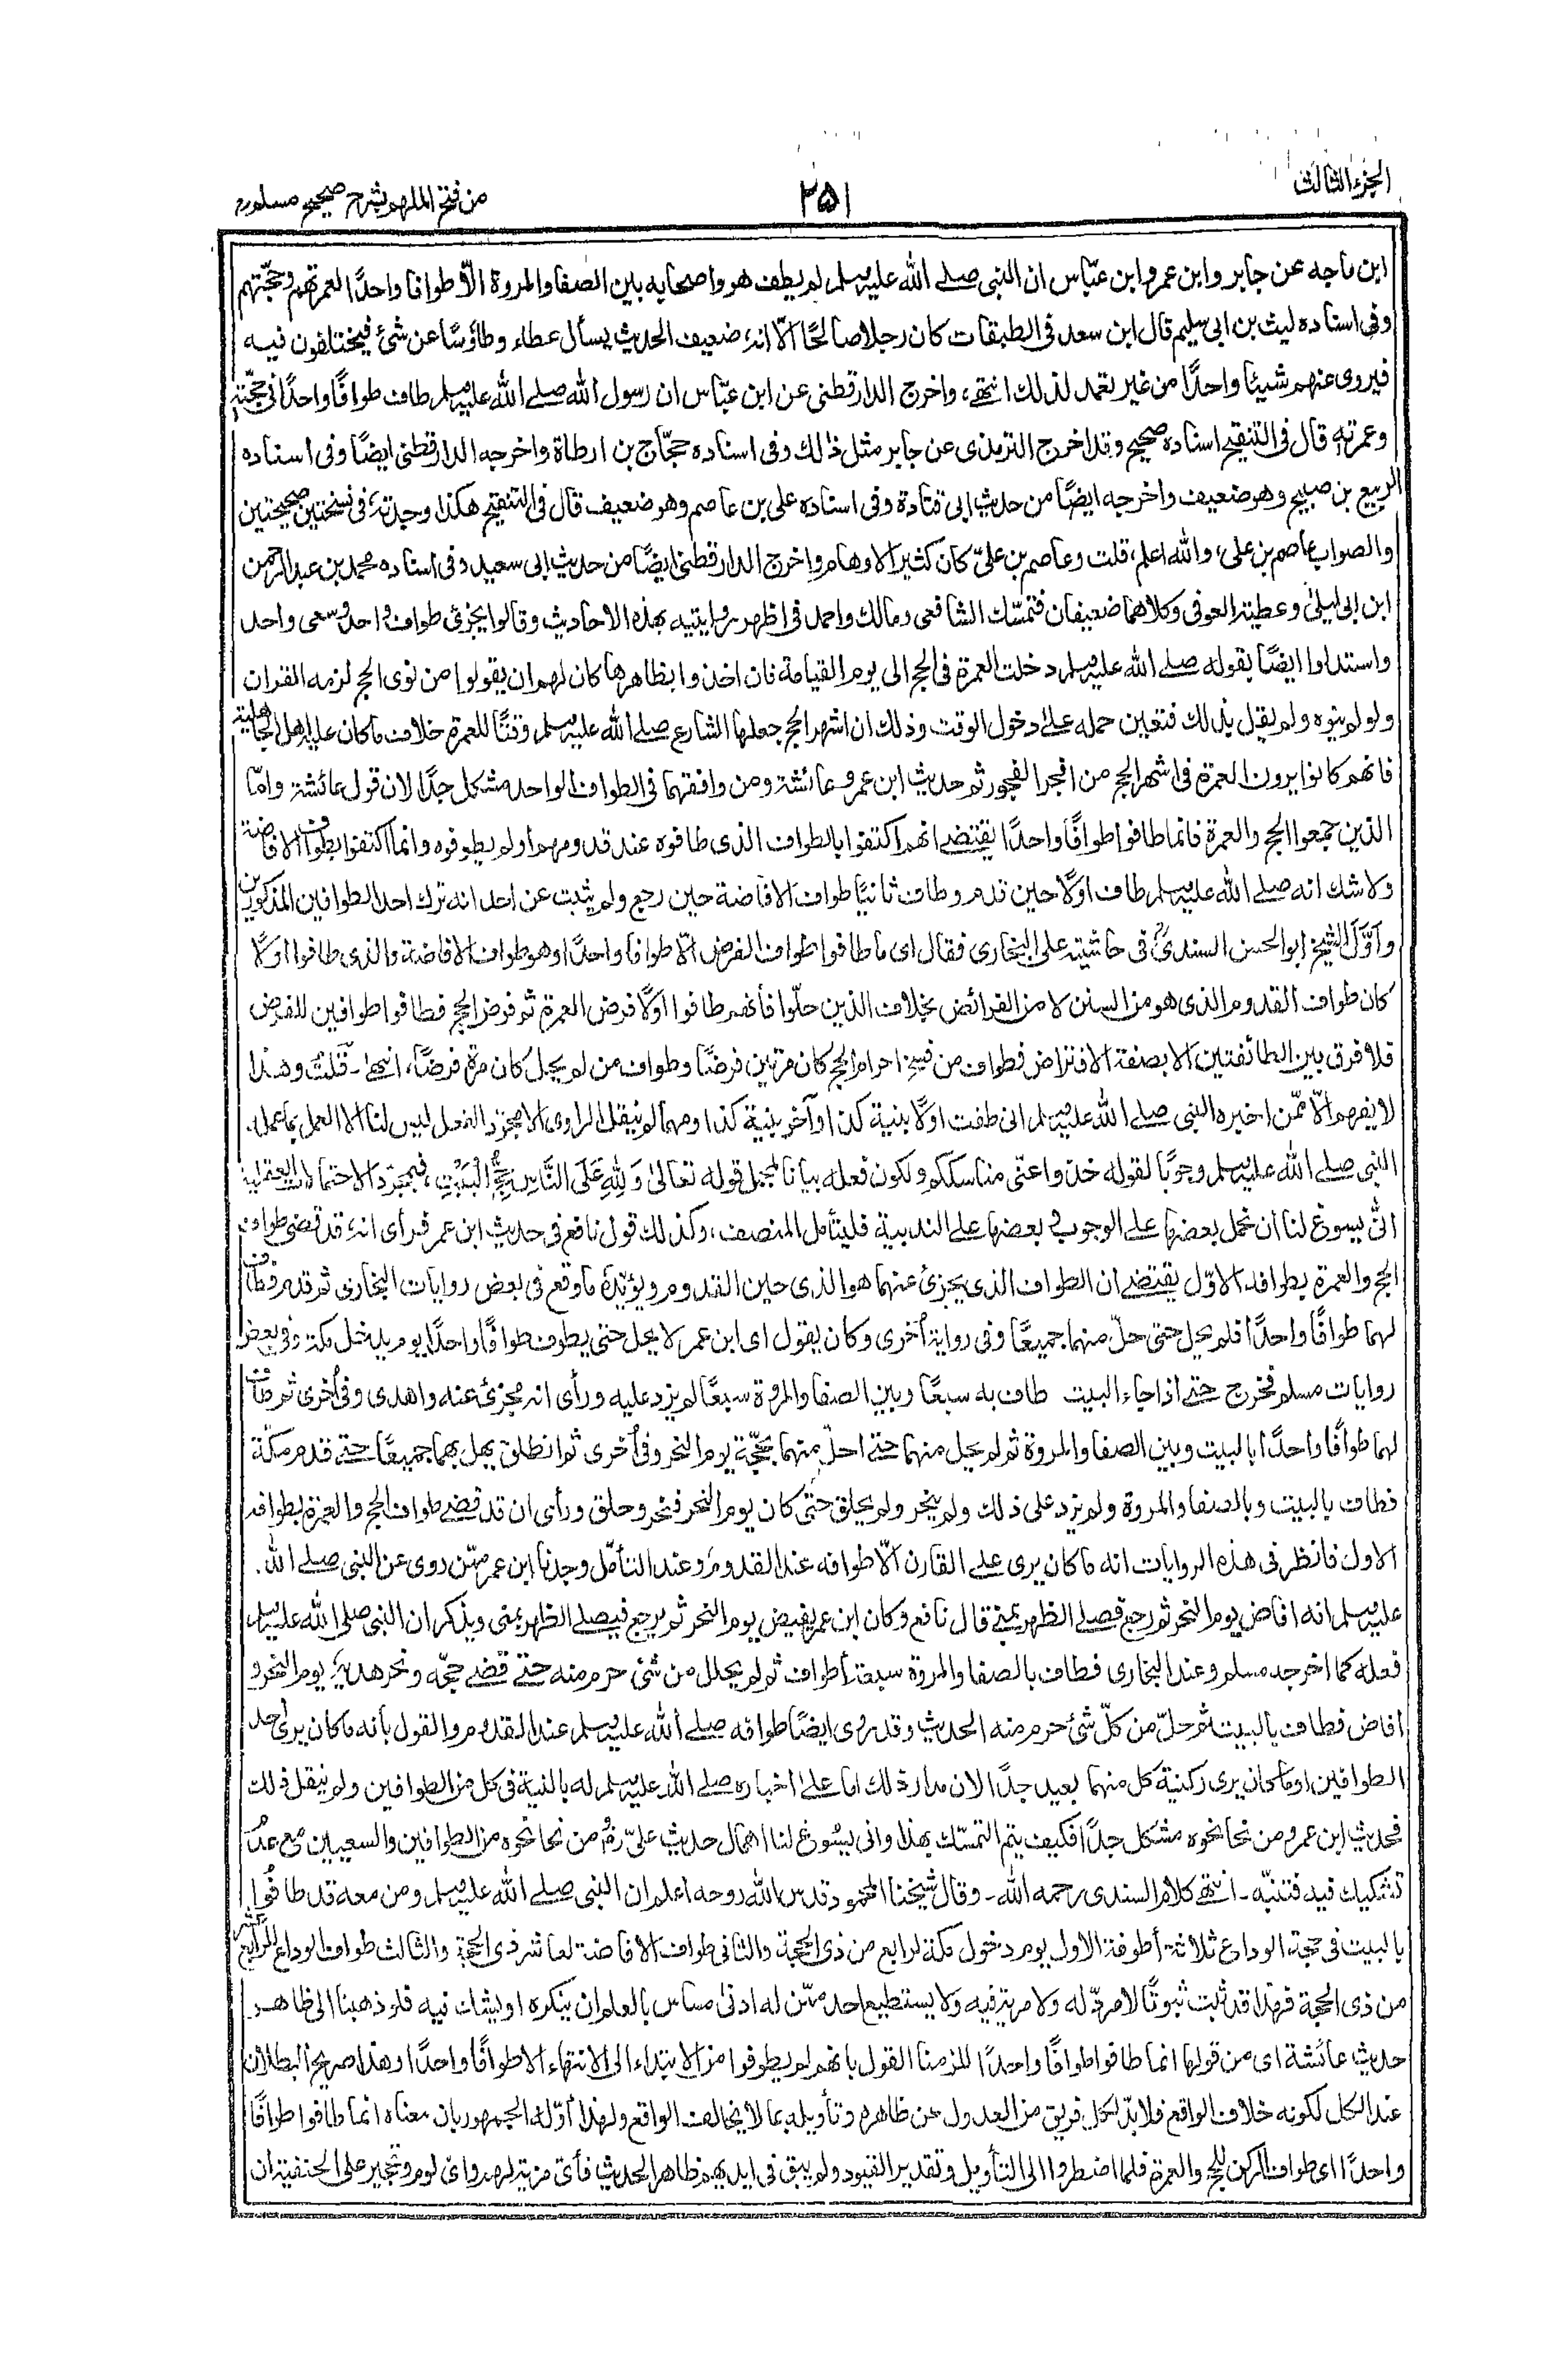 الجزء الثالث
٢٥١
من فتح الملهم بشرح صحيح مسلم
ابن ماجه عن جابر وابن عمر وابن عبّاس ان النبي صلے الله عليه وسلم لم يطف هو واصحابه بين الصفا والمروة الّا طوافا واحدًا لعمرتهم وحجّتهم
وفى اسناده ليث بن ابى سليم قال ابن سعد فى الطبقات كان رجلا صالحًا الّا انه ضعيف الحديث يسأل عطاء وطاؤسًا عن شئ فيختلفون فيه
فيروى عنهم شيئا واحدًا من غير تعمد لذلك انتهے، واخرج الدارقطنى عن ابن عبّاس ان رسول الله صلے الله عليه وسلم طاف طوافًا واحدًا فى حجّته
وعمرته قال فى التنقيح اسناده صحيح وقد اخرج الترمذى عن جابر مثل ذالك وفى اسناده حجّاج بن ارطاة واخرجه الدارقطنى ايضًا وفى اسناده
الربيع بن صبيح وهو ضعيف واخرجه ايضًا من حديث ابى قتادة وفى اسناده على بن عاصم وهو ضعيف قال فى التنقيح هكذا وجدته فى نسختين صحيحتين
والصواب عاصم بن على، والله اعلم، قلت وعاصم بن علىّ كان كثير الاوهام واخرج الدارقطنى ايضًا من حديث ابى سعيد وفى اسناده محمد بن عبد الرحمن
ابن ابى ليلىٰ وعطية العوفى وكلاهما ضعيفان فتمسّك الشافعى ومالك واحمد فى اظهر روايتيه بهذه الاحاديث وقالوا يجزئ طواف واحد وسعى واحد
واستدلوا ايضًا بقوله صلے الله عليه وسلم دخلت العمرة فى الحج الى يوم القيامة فان اخذوا بظاهرها كان لهم ان يقولوا من نوى الحج لزمه القران
ولو لم ينوه ولم يقل بذلك فتعين حمله علےٰ دخول الوقت وذلك ان اشهر الحج جعلها الشارع صلے الله عليه وسلم وقتًا للعمرة خلاف ما كان عليه اهل الجاهلية
فانهم كانوا يرون العمرة فى اشهر الحج من افجر الفجور ثم حديث ابن عمر وعائشة ومن وافقهما فى الطواف الواحد مشكل جدًا لان قول عائشة وامّا
الذين جمعوا الحج والعمرة فانما طافوا طوافًا واحدًا يقتضے انهم اكتفوا بالطواف الذى طافوه عند قدومهم أو لم يطوفوه وانما اكتفوا بطواف الافاضة
ولا شك انه صلے الله عليه وسلم طاف اوّلًا حين قدم وطاف ثانيًا طواف الافاضة حين رجع ولم يثبت عن احد انه ترك احد الطوافين المذكورين
وأوّل الشيخ ابو الحسن السندىؒ فى حاشيته على البخارى فقال اى ما طافوا طواف الفرض الّا طوافا واحدًا وهو طواف الافاضة والذى طافوا اولًا
كان طواف القدوم الذى هو من السنن لا من الفرائض بخلاف الذين حلّوا فأنهم طافوا اوّلًا فرض العمرة ثم فرض الحج فطافوا طوافين للفرض
فلا فرق بين الطائفتين الا بصفة الافتراض فطواف من فسخ احرام الحج كان مرّتين فرضًا وطواف من لم يحل كان مرة فرضًا، انتهے۔ قلت وهذا
لا يفهم الّا ممّن اخبره النبى صلے الله عليه وسلم انى طفت اوّلًا بنية كذا وآخر بنية كذا ومهما لم ينقل الراوى الا مجرّد الفعل ليس لنا الا العمل بما عمل
النبى صلے الله عليه وسلم وجوبًا لقوله خذوا عنّى مناسككم ولكون فعله بيانا لمجمل قوله تعالىٰ وَلِلّٰهِ عَلَى النَّاسِ حِجُّ الْبَيْتِ، فبمجرّد الاحتمالات العقلية
انّى يسوغ لنا ان نحمل بعضها علے الوجوب وبعضها علے الندبية فليتأمل المنصف، وكذلك قول نافع فى حديث ابن عمر فرأى انه قد قضى طواف
الحج والعمرة بطوافه الاوّل يقتضے ان الطواف الذى يجزئ عنهما هو الذى حين القدوم ويؤيّدهٔ ما وقع فى بعض روايات البخارى ثم قدم وطاف
لهما طوافًا واحدًا فلم يحل حتى حلّ منهما جميعًا وفى رواية أخرى وكان يقول اى ابن عمر لا يحل حتى يطوف طوافًا واحدًا يوم يدخل مكة وفى بعض
روايات مسلم فخرج حتے اذا جاء البيت طاف به سبعًا وبين الصفا والمروة سبعًا لم يزد عليه ورأى انه مجزئ عنه واهدى وفى أخرى ثم طاف
لهما طوافًا واحدًا بالبيت وبين الصفا والمروة ثم لم يحل منهما حتے احلّ منهما بحجّة يوم النحر وفى أخرى ثم انطلق يهل بهما جميعًا حتے قدم مكّة
فطاف بالبيت وبالصفا والمروة ولم يزد على ذلك ولم ينحر ولم يحلق حتّى كان يوم النحر فنحر وحلق ورأى ان قد قضے طواف الحج والعمرة بطوافه
الاول فانظر فى هذه الروايات انه ما كان يرى علے القارن الّا طوافه عند القدوم وعند التأمّل وجدنا ابن عمر ممّن روى عن النبى صلے الله
عليه وسلم انه افاض يوم النحر ثم رجع فصلے الظهر بمنٰے قال نافع وكان ابن عمر يفيض يوم النحر ثم يرجع فيصلے الظهر بمنى ويذكر ان النبى صلى الله عليه وسلم
فعله كما اخرجه مسلم وعند البخارى فطاف بالصفا والمروة سبعة أطواف ثم لم يحلل من شئ حرم منه حتے قضے حجّه ونحر هديه يوم النحر و
افاض فطاف بالبيت ثم حلّ من كلّ شئ حرم منه الحديث وقد روى ايضًا طوافه صلے الله عليه وسلم عند القدوم والقول بأنه ما كان يرى احد
الطوافين او ما كان يرى ركنية كل منهما بعيد جدًا لان مدار ذلك اما علےٰ اخباره صلے الله عليه وسلم له بالنية فى كل من الطوافين ولم ينقل ذلك
فحديث ابن عمر ومن نحا نحوه مشكل جدًا فكيف يتم التمسّك بهذا وانى يسوغ لنا اهمال حديث علىّ ومن نحا نحوه من الطوافين والسعيين مع عدم
تشكيك فيه فتنبّه۔ انتهے كلام السندى رحمه الله۔ وقال شيخنا المحمود قدس الله روحه اعلم ان النبى صلے الله عليه وسلم ومن معه قد طافوا
بالبيت فى حجة الوداع ثلاثة أطوفة الاول يوم دخول مكة لرابع من ذى الحجة والثانى طواف الافاضة لعاشر ذى الحجة والثالث طواف الوداع للرابع عشر
من ذى الحجة فهذا قد ثبت ثبوتًا لا مردّ له ولا مرية فيه ولا يستطيع احد ممّن له ادنىٰ مساس بالعلم ان ينكره او يشك فيه فلو ذهبنا الى ظاهر
حديث عائشة اى من قولها انما طافوا طوافًا واحدًا للزمنا القول بانهم لم يطوفوا من الابتداء الى الانتهاء الا طوافًا واحدًا وهذا صريح البطلان
عند الكل لكونه خلاف الواقع فلا بدّ لكل فريق من العدول عن ظاهره وتأويله بما لا يخالف الواقع ولهذا أوّله الجمهور بان معناه انما طافوا طوافًا
واحدًا اى طواف الركن للحج والعمرة فلما اضطروا الى التأويل وتقدير القيود ولم يبق فى ايديهم ظاهر الحديث فأىّ مزية لهم واىّ لوم وتحجير على الحنفية ان